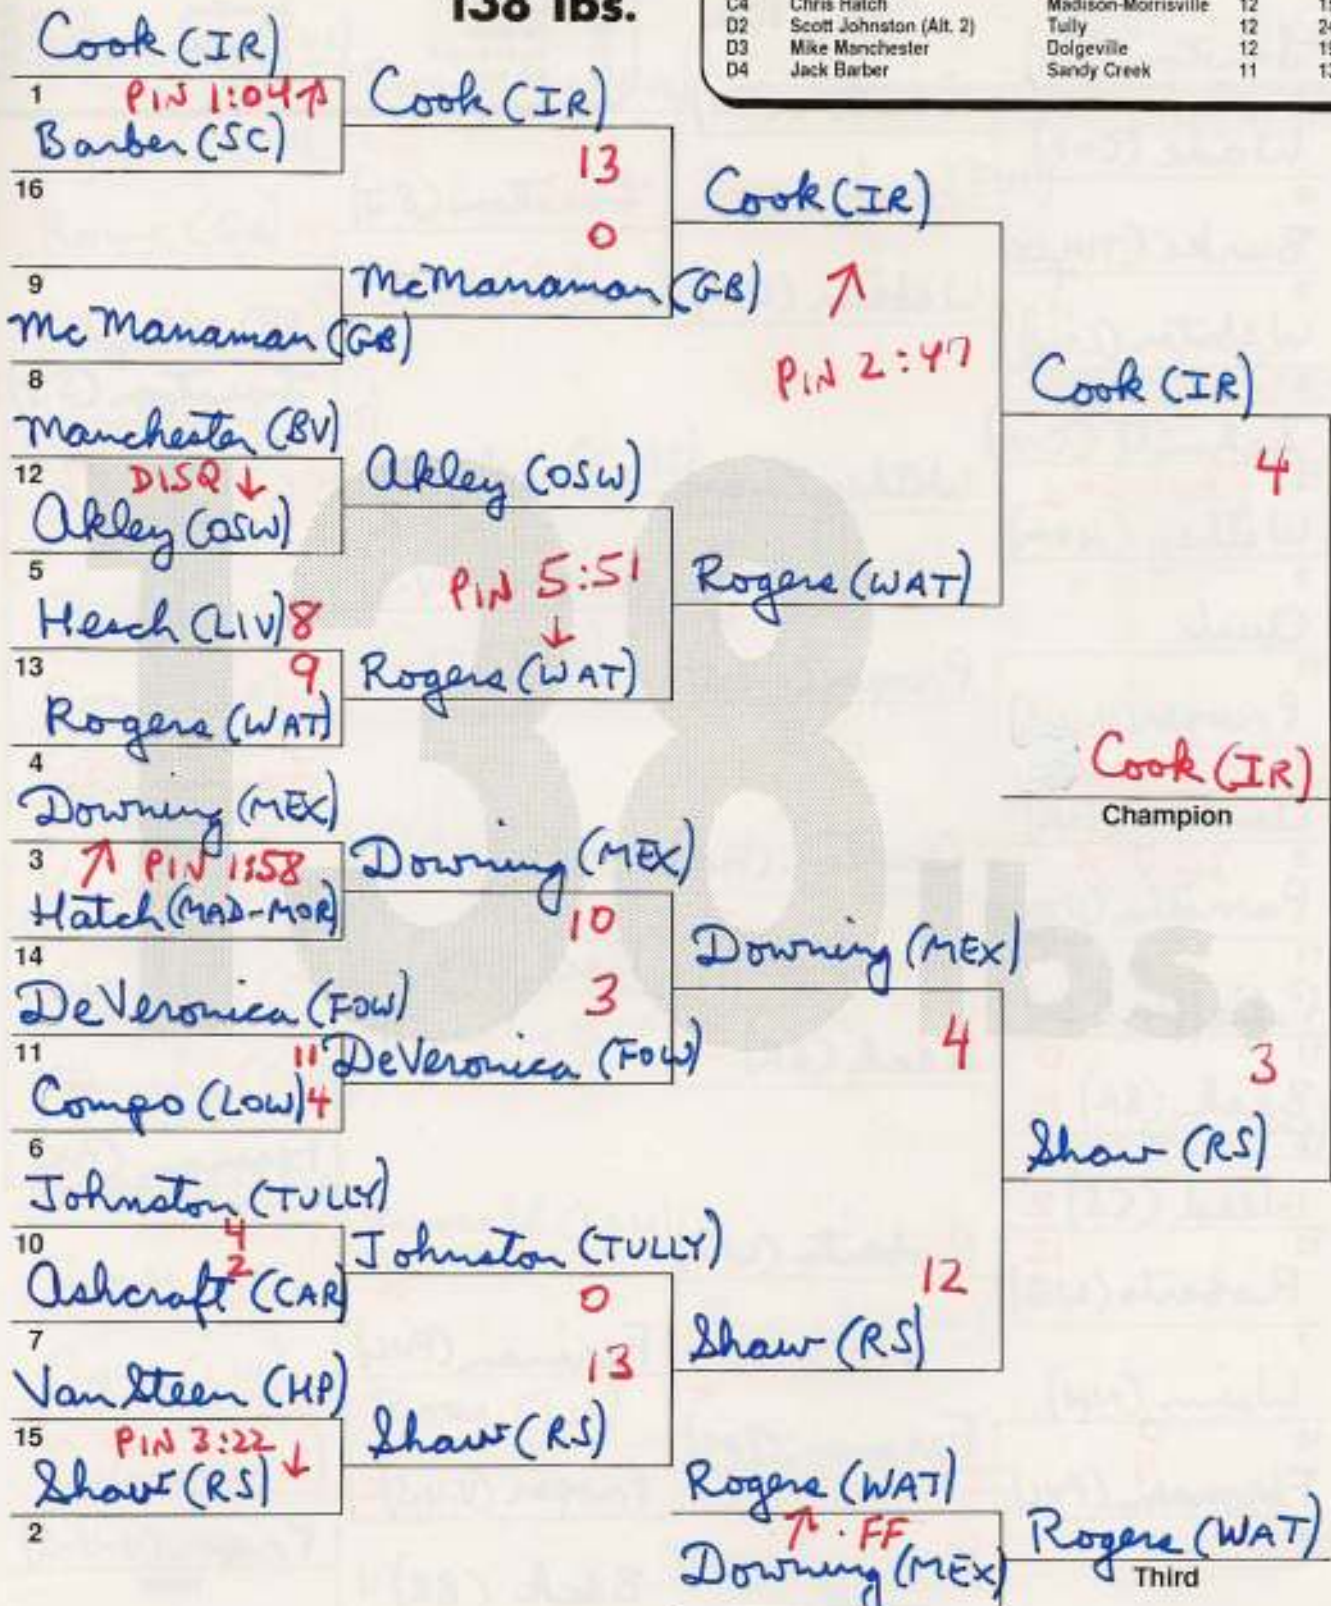 138 lbs.
C4 Chris Hatch Madison-Morrisville 12
D2 Scott Johnston (Alt. 2) Tully 12
D3 Mike Manchester Dolgeville 12
D4 Jack Barber Sandy Creek 11
Cook (IR)
1 PIN 1:04 ↑
Barber (SC)
16
9
McManaman (GB)
8
Manchester (BV)
12 DISQ ↓
Akley (OSW)
5
Hesch (LIV) 8
13 9
Rogers (WAT)
4
Downing (MEX)
3 ↑ PIN 1:58
Hatch (MAD-MOR)
14
DeVeronica (FOW)
11 11
Compo (LOW) 4
6
Johnston (TULLY)
10 4
2
Ashcraft (CAR)
7
Van Steen (HP)
15 PIN 3:22 ↓
Shaw (RS)
2
Cook (IR)
13
0
McManaman (GB)
Akley (OSW)
PIN 5:51
↓
Rogers (WAT)
Downing (MEX)
10
3
DeVeronica (FOW)
Johnston (TULLY)
0
13
Shaw (RS)
Cook (IR)
↑
PIN 2:47
Rogers (WAT)
Downing (MEX)
4
12
Shaw (RS)
Cook (IR)
4
Cook (IR)
Champion
3
Shaw (RS)
Rogers (WAT)
↑ . FF
Downing (MEX)
Rogers (WAT)
Third
138 lbs.